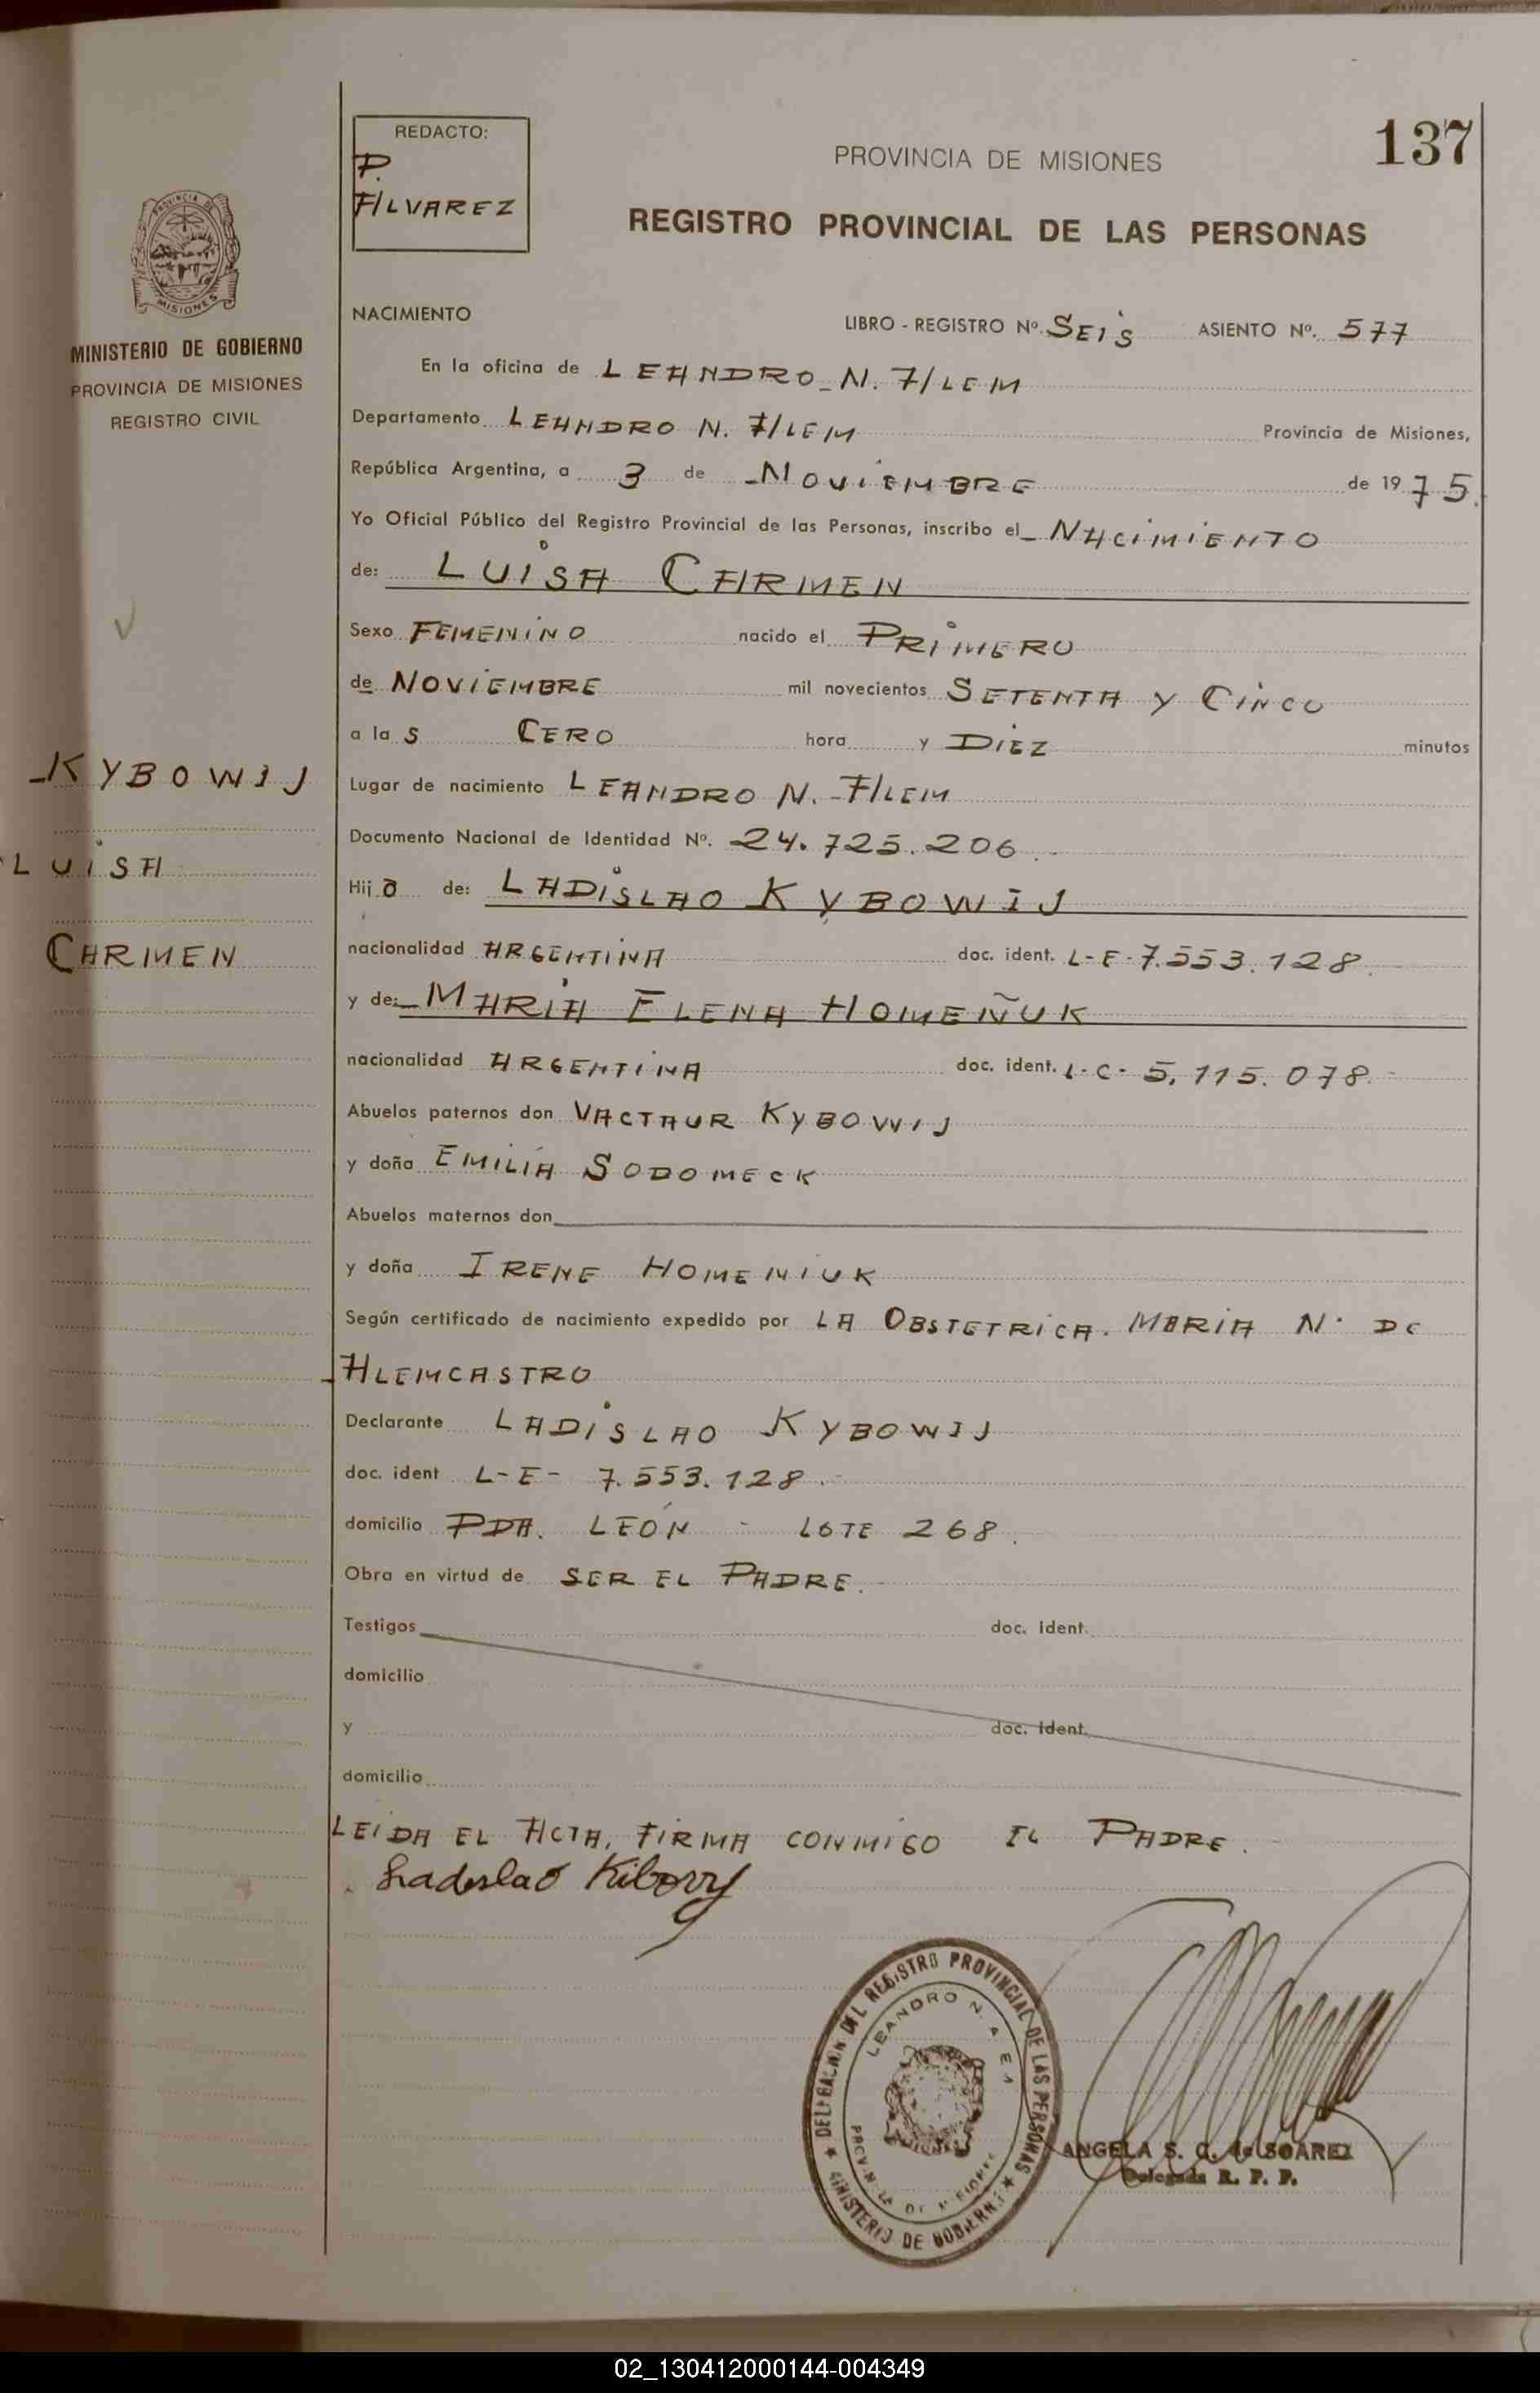 REDACTO:
P.
ALVAREZ
137
PROVINCIA DE MISIONES
REGISTRO PROVINCIAL DE LAS PERSONAS
PROVINCIA DE
MISIONES
MINISTERIO DE GOBIERNO
PROVINCIA DE MISIONES
REGISTRO CIVIL
KYBOWIJ
LUISA
CARMEN
NACIMIENTO LIBRO - REGISTRO Nº. SEIS ASIENTO Nº. 577
En la oficina de LEANDRO N. ALEM
Departamento LEANDRO N. ALEM Provincia de Misiones,
República Argentina, a 3 de NOVIEMBRE de 1975.
Yo Oficial Público del Registro Provincial de las Personas, inscribo el NACIMIENTO
de: LUISA CARMEN
Sexo FEMENINO nacido el PRIMERO
de NOVIEMBRE mil novecientos SETENTA Y CINCO
a las CERO hora y DIEZ minutos
Lugar de nacimiento LEANDRO N. ALEM
Documento Nacional de Identidad Nº. 24.725.206.-
Hija de: LADISLAO KYBOWIJ
nacionalidad ARGENTINA doc. ident. L-E-7.553.128.
y de: MARIA ELENA HOMEÑUK
nacionalidad ARGENTINA doc. ident. L-C- 5.115.078.-
Abuelos paternos don VACTAUR KYBOWIJ
y doña EMILIA SODOMECK
Abuelos maternos don
y doña IRENE HOMENIUK
Según certificado de nacimiento expedido por LA OBSTETRICA. MARIA N. DE
ALEMCASTRO
Declarante LADISLAO KYBOWIJ
doc. ident L-E- 7.553.128.-
domicilio PDA. LEÓN - LOTE 268.
Obra en virtud de SER EL PADRE.-
Testigos doc. ident.
domicilio
y doc. ident.
domicilio
LEIDA EL ACTA, FIRMA CONMIGO EL PADRE.
Ladeslao Kibovy
DELEGACION DEL REGISTRO PROVINCIAL DE LAS PERSONAS
LEANDRO N. ALEM
PROVINCIA DE MISIONES
MINISTERIO DE GOBIERNO
ANGELA S. G. de SOAREZ
Delegada R. P. P.
02_130412000144-004349